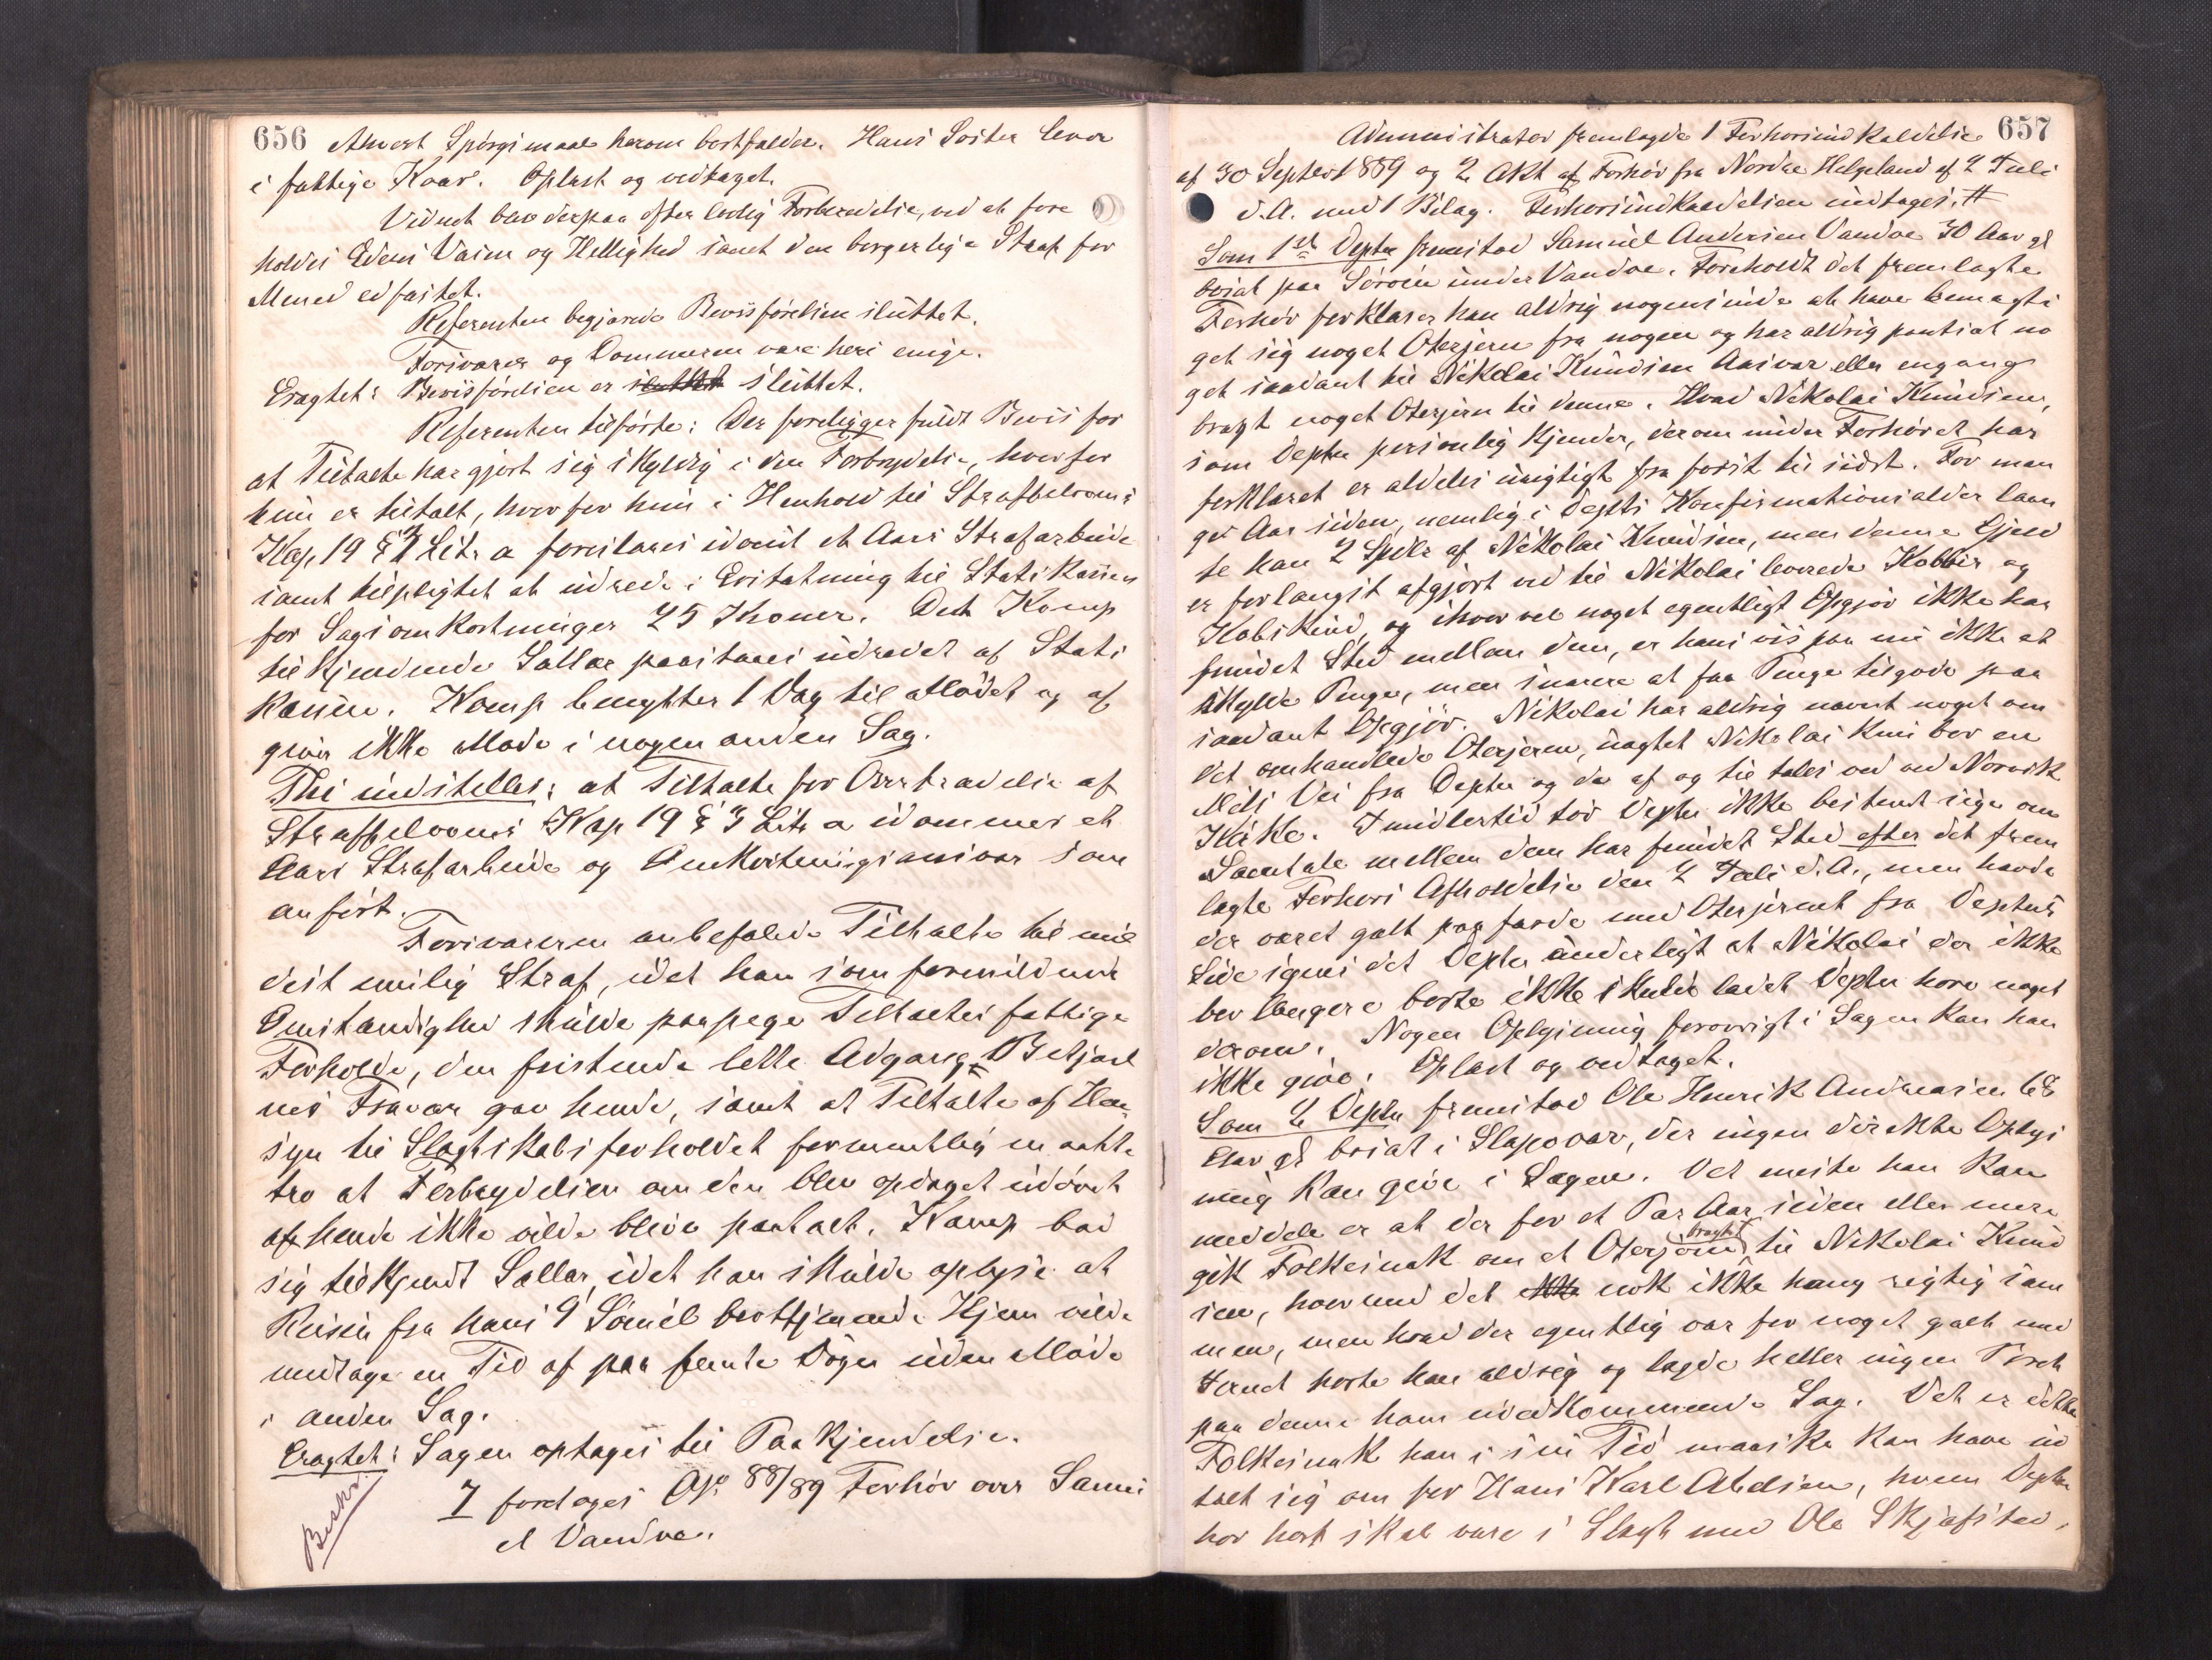 656 Ahvert Spörgsmaal herom bortfalder. Hans Söster lever
i fattige Kaar. Oplæst og vedtaget.
Vidnet blev derpaa efter lovlig Forberedelse, ved at fore
holdes Edens Værn og Hellighed samt den borgerlige Straf for
Mened edfæstet.
Referenten begjærede Bevisförelsen sluttet.
Forsvarer og Dommerne vare heri enige.
Eragtet: Bevisförelsen er sluttet sluttet.
Referenten tilförte: Der foreligger fuldt Bevis for
at Tiltalte har gjort sig skyldig i den Forbrydelse, hvorfor
hun er tiltalt, hvorfor hun i Henhold til Straffelovens
Kap. 19 § 3 Litr a foreslaaes idömt et Aars Strafarbeide
samt tilpligtet at udrede i Erstatning til Statskassen
for Sagsomkostninger 25 Kroner. Det Kamp
tilkjendende Sallær paastaaes udredet af Stats
kassen. Kamp benytter 1 Dag til Mödet og af
giver ikke Möde i nogen anden Sag.
Thi indstilles: at Tiltalte for Overtrædelse af
Straffelovens Kap 19 § 3 Litr a idömmes et
Aars Strafarbeide og Omkostningsansvar som
anfört.
Forsvareren anbefalede Tiltalte til mil
dest mulig Straf, idet han som formildende
Omstændighed skulde paapege Tiltaltes fattige
Forholde, den fristende lette Adgang Betjent
nes Fravær gav hende, samt at Tiltalte af Hen
syn til Slægtskabsforholdet formentlig maatte
tro at Forbrydelsen om den blev opdaget udövet
af hende ikke vilde blive paatalt. Kamp bad
sig tilkjendt Sallær, idet han skulde oplyse at
Reisen fra hans 9 Sömil bortliggende Hjem vilde
medtage en Tid af paa femte Dögn uden Möde
i anden Sag.
Eragtet: Sagen optages til Paakjendelse.
7 foretoges Os. 88/89 Forhör over Samu
el Vandve.
Beskr
657
Administrator fremlagde 1 Forhörsindkaldelse
af 30 Septbr 1889 og 2 Akt af Forhör fra Nordre Helgeland af 2 Juli
d.A. med 1 Bilag. Forhörsindkaldelsen indtages. #
Som 1st Deptn fremstod Samuel Andersen Vandve 30 Aar gl
bosat paa Söröen under Vandve. Foreholdt det fremlagte
Forhör forklarer han aldrig nogensinde at have bemægti
get sig noget Oterjern fra nogen og har aldrig pantsat no
get saadant til Nikolai Knudsen Aasvær eller engang
bragt noget Oterjern til denne. Hvad Nikolai Knudsen,
som Deptn personlig kjender, derom under Forhöret har
forklaret er aldeles urigtigt fra först til sidst. For man
ge Aar siden, nemlig i Deptns Konfirmationsalder laan
te han 2 Spdlr af Nikolai Knudsen, men denne Gjæld
er forlængst afgjort ved til Nikolai leverede Kobbes og
Kobskind, og ihvorvel noget egentligt Opgjör ikke har
fundet Sted mellem dem, er hans vis paa nu ikke at
skylde Penge, men snarere at faa Penge tilgode paa
saadant Opgjör. Nikolai har aldrig nævnt noget om
det omhandlede Oterjern, uagtet Nikolai kun bor en
Mils Vei fra Deptn og de af og til tales ved ved Norvik
Kirke. Imidlertid tör Deptn ikke bestemt sige om
Samtale mellem dem har fundet Sted efter det frem
lagte Forhörs Afholdelse den 2 Juli d.A., men havde
der været galt paafærde med Oterjernet fra Deptns
Side synes det Deptn underligt at Nikolai der ikke
bor længere borte ikke skulde ladet Deptn höre noget
derom. Nogen Oplysning forövrigt i Sagen kan han
ikke give. Oplæst og vedtaget.
Som 2 Deptn fremstod Ole Henrik Andreasen 68
Aar gl bosat i Slapövær, der ingen direkte Oplys
ning kan give i Sagen. Det meste han kan
meddele er at der for et Par Aar siden eller mere
gik Folkesnak om et Oterjern bragt til Nikolai Knud
sen, hvormed det ikke nok ikke hang rigtig sam
men, men hvad der egentlig var for noget galt med
Jernet hörte han aldrig og lagde heller ingen Verdt
paa denne ham uvedkommende Sag. Det er dette
Folkesnak han i sin Tid maaske kan have ud
talt sig om for Hans Karl Abelsen, hvem Deptn
har hört skal være i Slægt med Ole Skjæfstad,